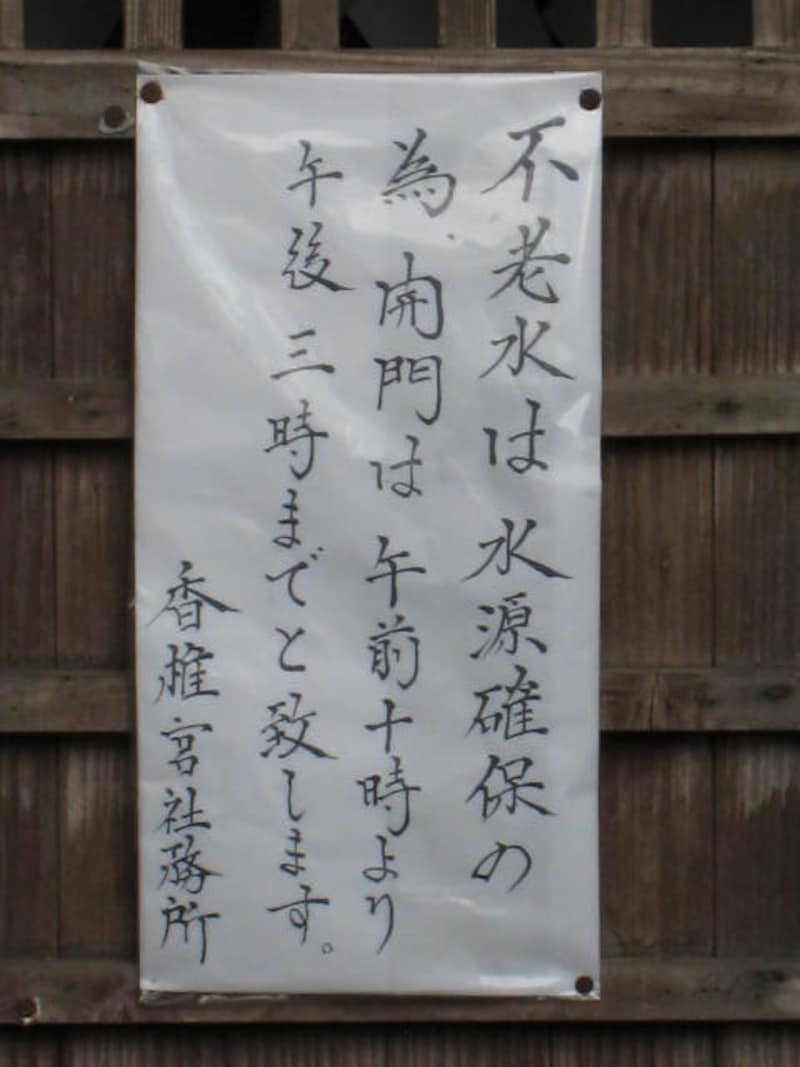 不老水は水源確保の
為、開門は午前十時より
午後三時までと致します。
香椎宮社務所